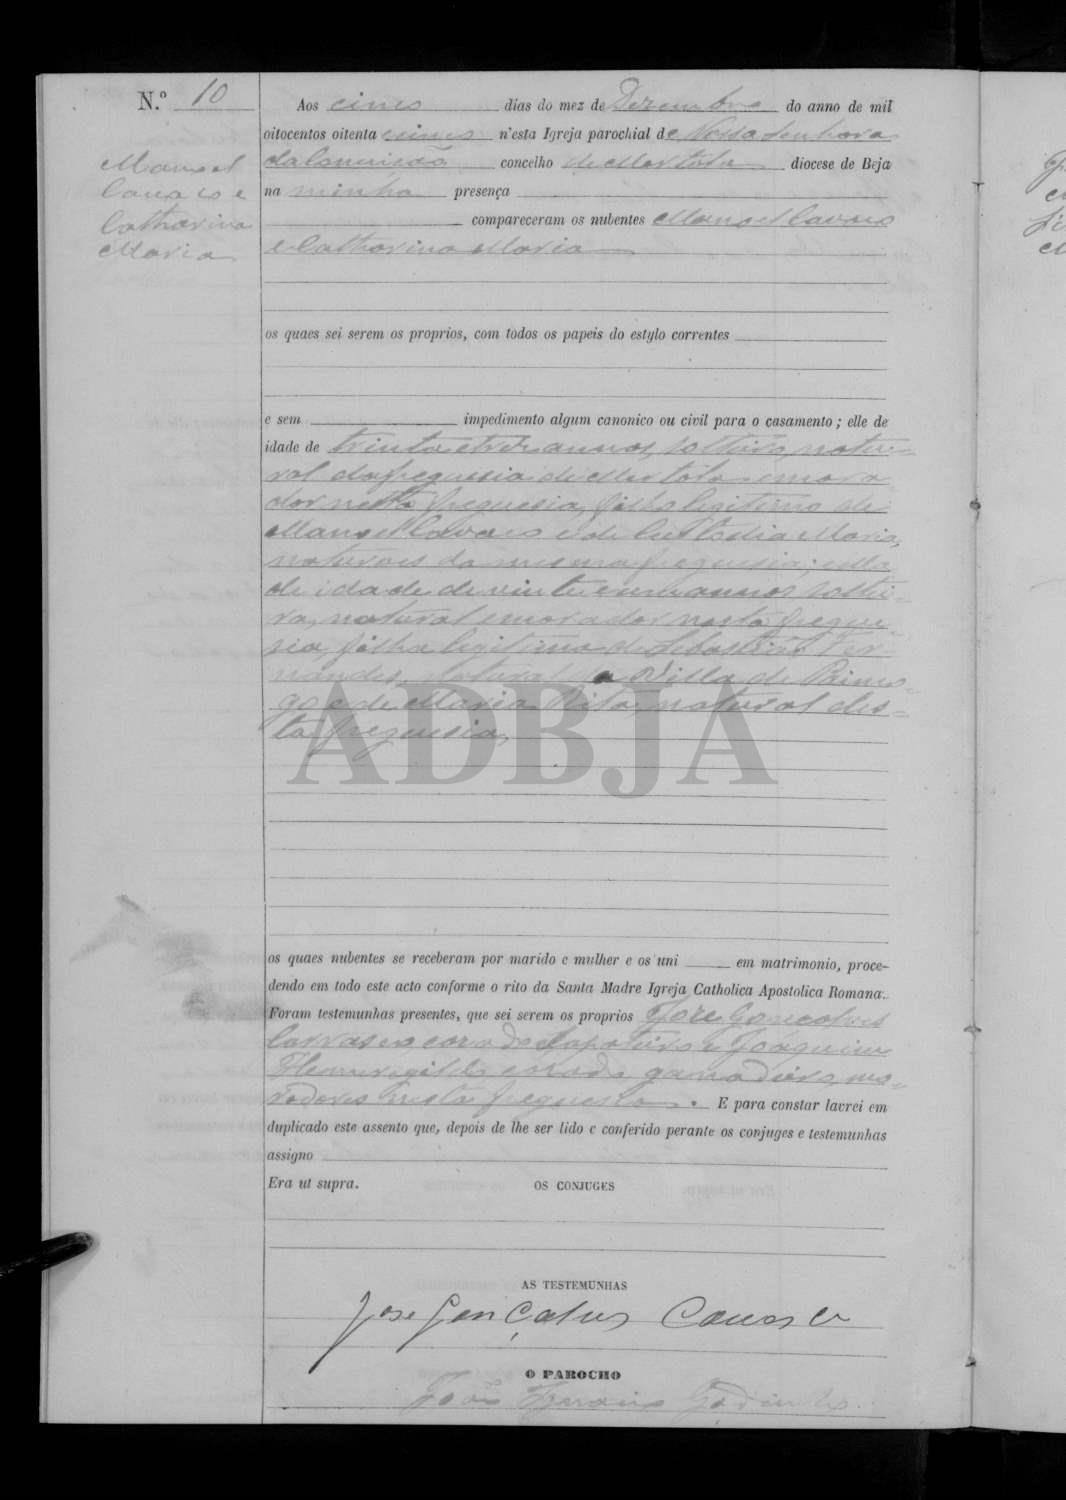 N.º 10
Manoel
e
Catharina
Maria
Aos cinco dias do mez de Dezembro do anno de mil
oitocentos oitenta cinco n'esta Igreja parochial de Nossa Senhora
da Conceição concelho de Mertola diocese de Beja
na minha presença
compareceram os nubentes Manoel
e Catharina Maria
os quaes sei serem os proprios, com todos os papeis do estylo correntes
e sem impedimento algum canonico ou civil para o casamento ; elle de
idade de trinta e tres annos, solteiro, natu-
ral da freguesia de Mertola e mora
dor nesta freguesia, filho legitimo de
Manoel e de Custodia Maria,
naturaes da mesma freguesia; ella
de idade de vinte e um annos soltei-
ra, natural e morador nesta fregue-
sia, filha legitima de Sebastião Fer-
nandes, natural da Villa de
e de Maria Rita, natural des-
ta freguesia,
ADBJA
os quaes nubentes se receberam por marido e mulher e os uni em matrimonio, proce-
dendo em todo este acto conforme o rito da Santa Madre Igreja Catholica Apostolica Romana.
Foram testemunhas presentes, que sei serem os proprios José Gonçalves
sapateiro e Joaquim
ganadeiro, mo-
radores nesta freguesia. E para constar lavrei em
duplicado este assento que, depois de lhe ser lido e conferido perante os conjuges e testemunhas
assigno
Era ut supra. OS CONJUGES
AS TESTEMUNHAS
Jose Gonçalves
O PAROCHO
João Godinho